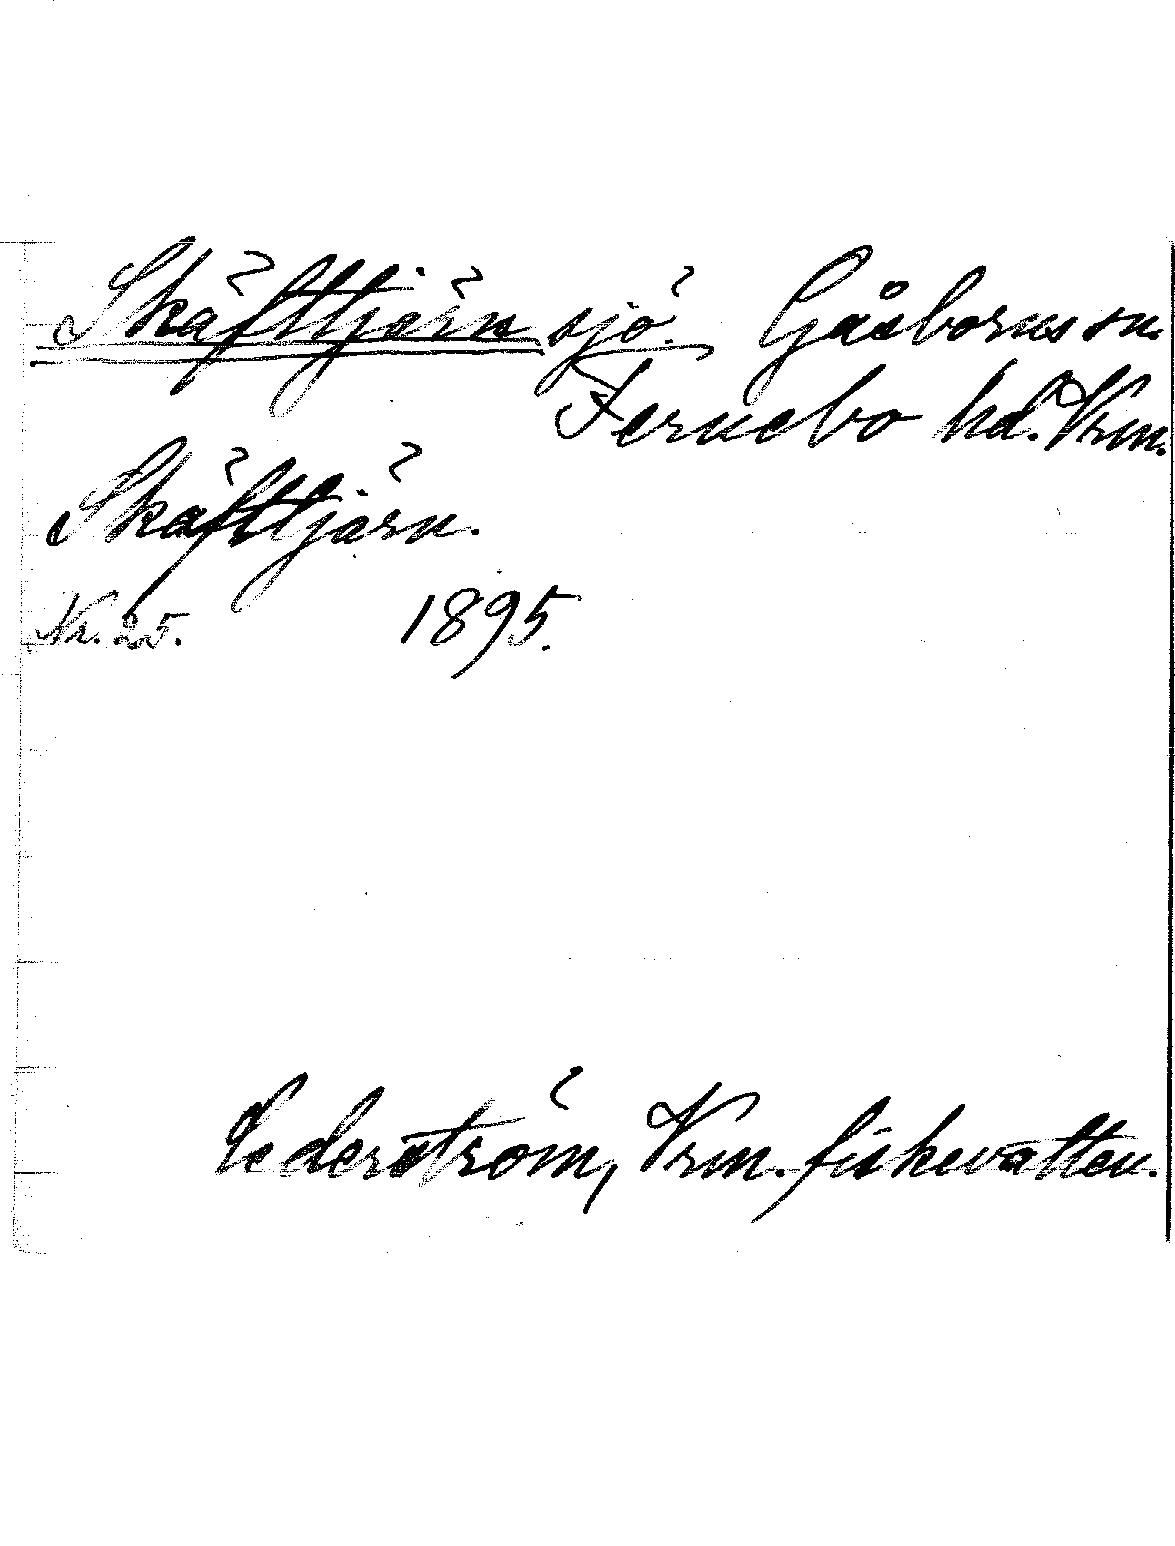 Skäfttjärn sjö. Gåsborns sn.
Fernebo hd. Vrm.
Skäfttjärn.
Nr. 25. 1895.
Cederström, Vrm. fiskevatten.